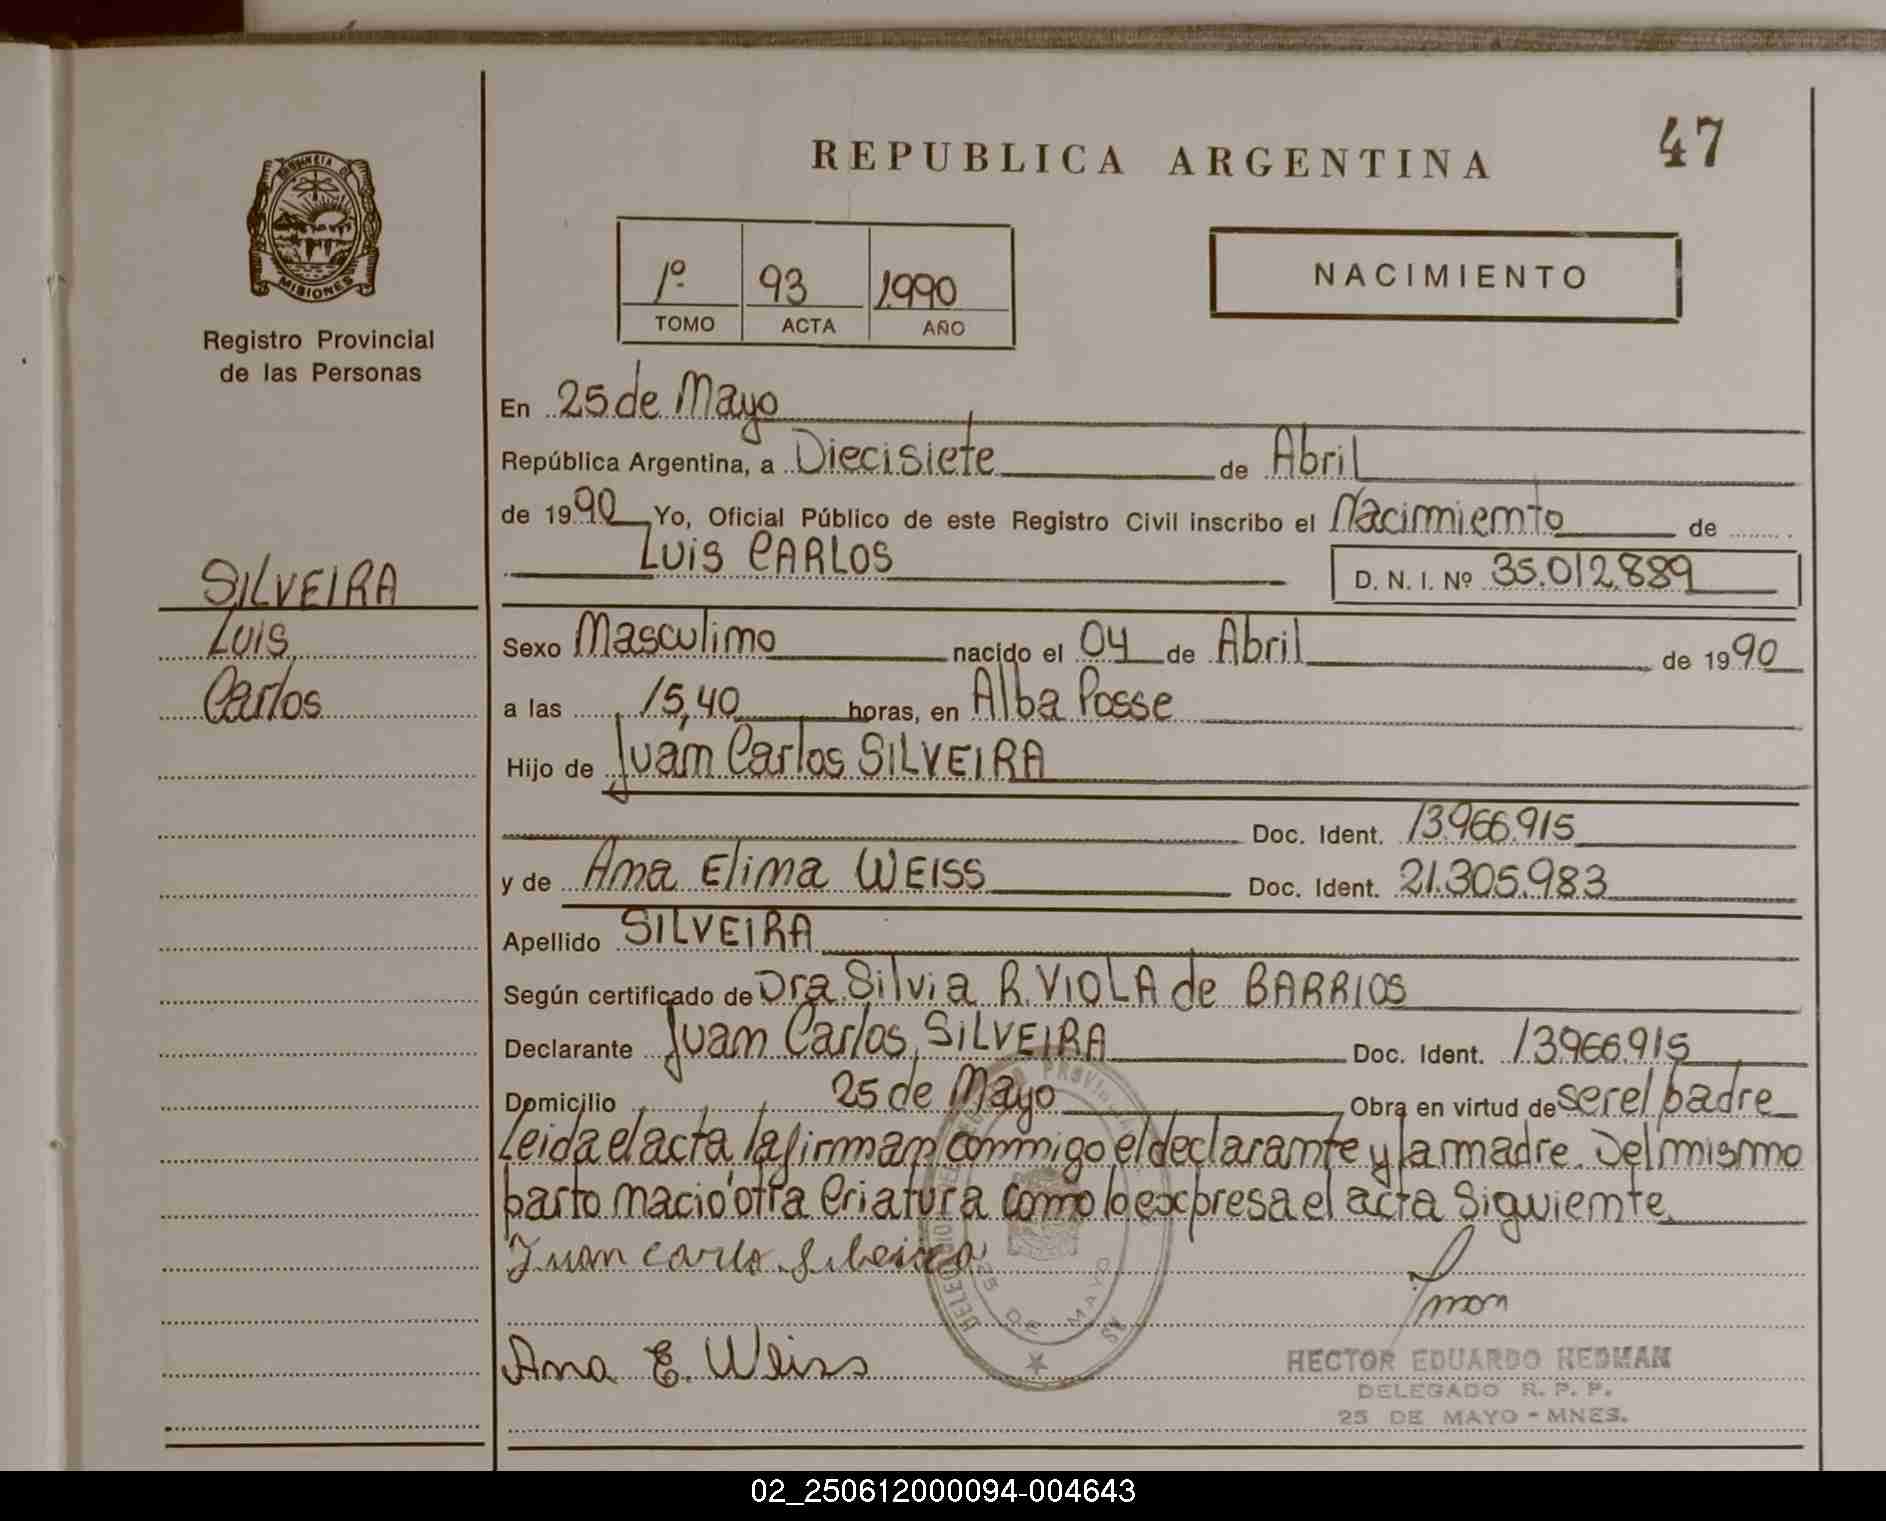 REPUBLICA ARGENTINA
47
PROVINCIA D
MISIONES
Registro Provincial
de las Personas
1º 93 1990
TOMO ACTA AÑO
NACIMIENTO
En 25 de Mayo
República Argentina, a Diecisiete de Abril
de 1990 Yo, Oficial Público de este Registro Civil inscribo el Nacimiento de
LUIS CARLOS
D. N. I. Nº 35.012.889
SILVEIRA
Luis
Carlos
Sexo Masculino nacido el 04 de Abril de 1990
a las 15,40 horas, en Alba Posse
Hijo de Juan Carlos SILVEIRA
Doc. Ident. 13.966.915
y de Ana Elina WEISS Doc. Ident. 21.305.983
Apellido SILVEIRA
Según certificado de Dra. Silvia R. VIOLA de BARRIOS
Declarante Juan Carlos SILVEIRA Doc. Ident. 13.966.915
Domicilio 25 de Mayo Obra en virtud de ser el padre
Leida el acta la firman conmigo el declarante y la madre. Del mismo
parto nació otra criatura como lo expresa el acta siguiente
Juan Carlo Silbeira
Ana E. Weiss
25 DE MAYO
HECTOR EDUARDO HEDMAN
DELEGADO R. P. P.
25 DE MAYO - MNES.
02_250612000094-004643